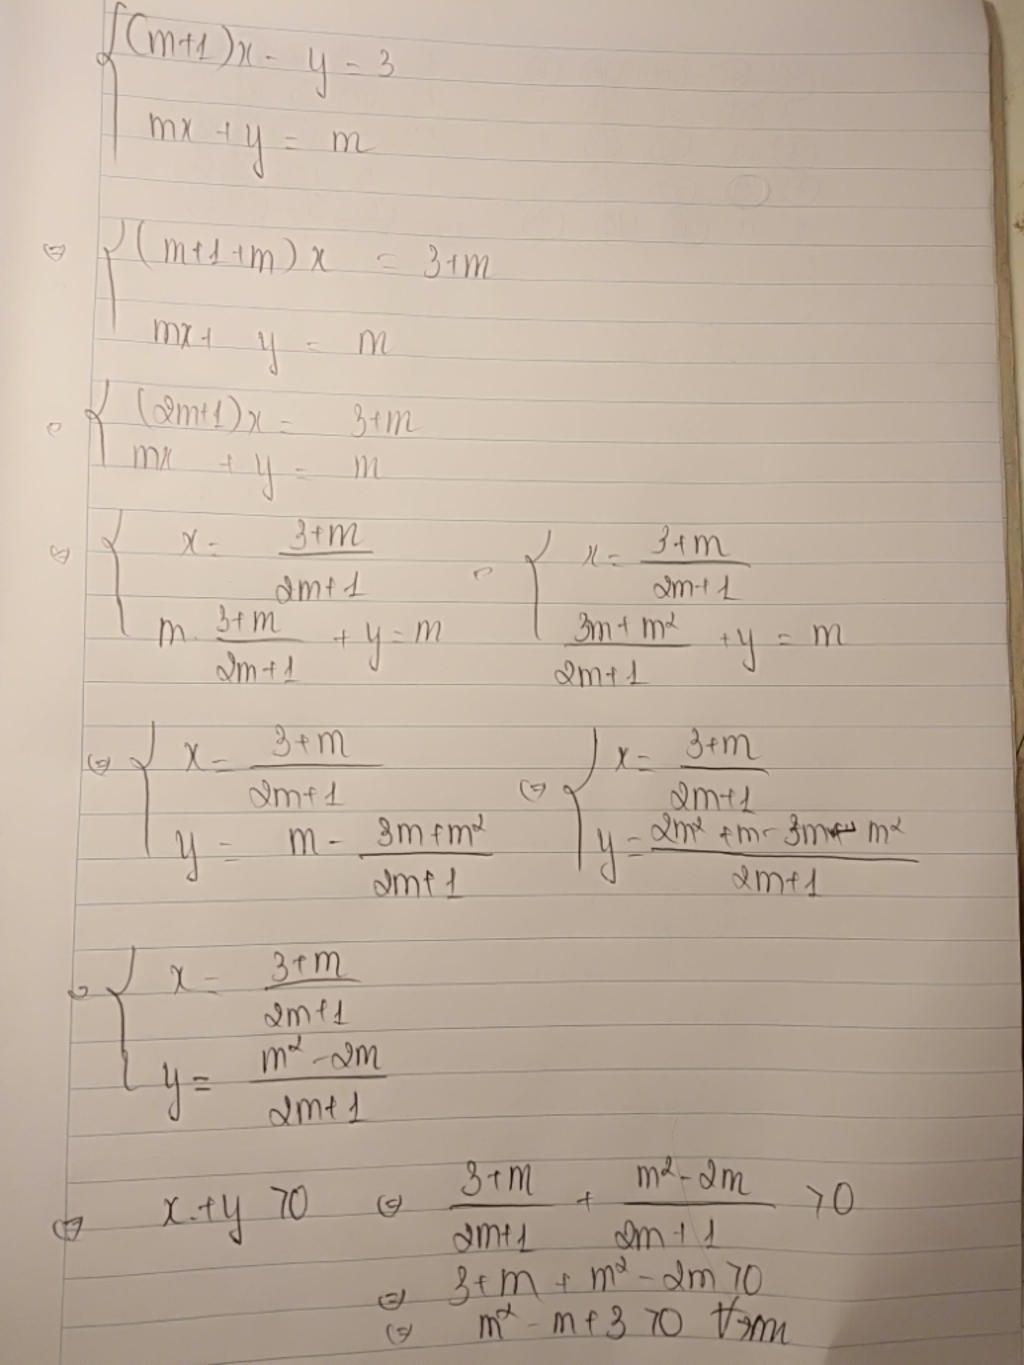 { (m+1)x - y = 3
mx + y = m
⇔ { (m+1+m)x = 3+m
mx + y = m
⇔ { (2m+1)x = 3+m
mx + y = m
⇔ { x = (3+m)/(2m+1) ⇔ { x = (3+m)/(2m+1)
m. (3+m)/(2m+1) + y = m (3m+m²)/(2m+1) + y = m
⇔ { x = (3+m)/(2m+1) ⇔ { x = (3+m)/(2m+1)
y = m - (3m+m²)/(2m+1) y = (2m²+m-3m-m²)/(2m+1)
⇔ { x = (3+m)/(2m+1)
y = (m²-2m)/(2m+1)
⇔ x+y >0 ⇔ (3+m)/(2m+1) + (m²-2m)/(2m+1) >0
⇔ 3+m+m²-2m >0
⇔ m²-m+3 >0